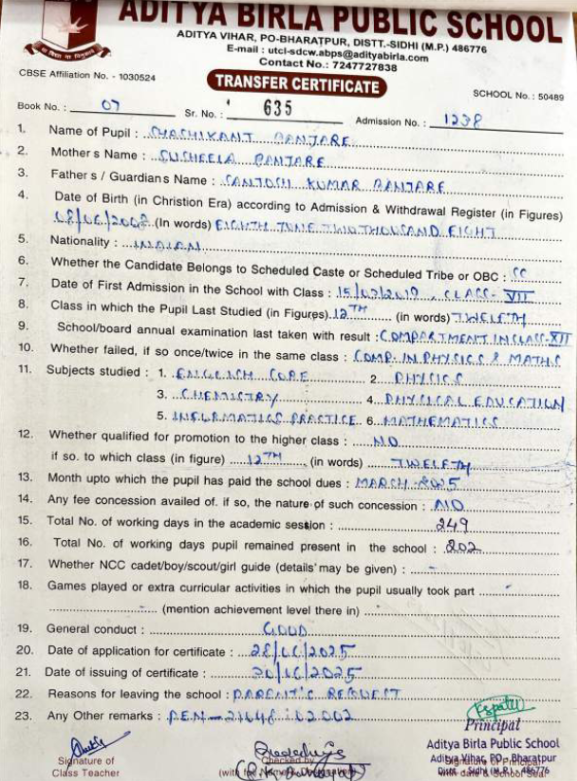 ADITYA BIRLA PUBLIC SCHOOL
ADITYA VIHAR, PO-BHARATPUR, DISTT.-SIDHI (M.P.) 486776
E-mail : utcl-sdcw.abps@adityabirla.com
Contact No.: 7247727838
CBSE Affiliation No. - 1030524
TRANSFER CERTIFICATE
SCHOOL No. : 50489
Book No. : 07 Sr. No. : 635 Admission No. : 1238
1. Name of Pupil : SHASHIKANT BANJARE
2. Mother s Name : SUSHEELA BANJARE
3. Father s / Guardian s Name : SANTOSH KUMAR BANJARE
4. Date of Birth (in Christion Era) according to Admission & Withdrawal Register (in Figures)
08/06/2008 (In words) EIGHTH JUNE TWO THOUSAND EIGHT
5. Nationality : INDIAN
6. Whether the Candidate Belongs to Scheduled Caste or Scheduled Tribe or OBC : SC
7. Date of First Admission in the School with Class : CLASS- VII
8. Class in which the Pupil Last Studied (in Figures) 12TH (in words) TWELFTH
9. School/board annual examination last taken with result : COMPARTMENT IN CLASS-XII
10. Whether failed, if so once/twice in the same class : COMP. IN PHYSICS & MATHS
11. Subjects studied : 1. ENGLISH CORE 2. PHYSICS
3. CHEMISTRY 4. PHYSICAL EDUCATION
5. INFORMATICS PRACTICE 6. MATHEMATICS
12. Whether qualified for promotion to the higher class : NO
if so. to which class (in figure) 12TH (in words) TWELFTH
13. Month upto which the pupil has paid the school dues : MARCH-2025
14. Any fee concession availed of. if so, the nature of such concession : NO
15. Total No. of working days in the academic session : 249
16. Total No. of working days pupil remained present in the school : 202
17. Whether NCC cadet/boy/scout/girl guide (details may be given) : -
18. Games played or extra curricular activities in which the pupil usually took part -
- (mention achievement level there in)
19. General conduct : GOOD
20. Date of application for certificate : 28/06/2025
21. Date of issuing of certificate : 30/06/2025
22. Reasons for leaving the school : PARENT'S REQUEST
23. Any Other remarks : PEN-
Principal
Aditya Birla Public School
Aditya Vihar, PO - Bharatpur
Distt. - Sidhi (M.P.) 486776
Signature of
Class Teacher
Checked by